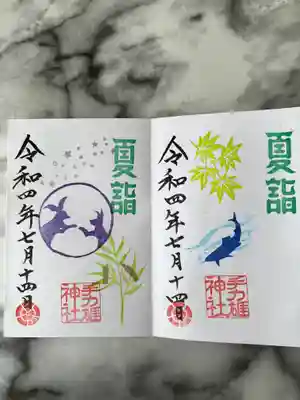 夏詣
手力雄
神社
令和四年七月十四日
夏詣
手力雄
神社
令和四年七月十四日